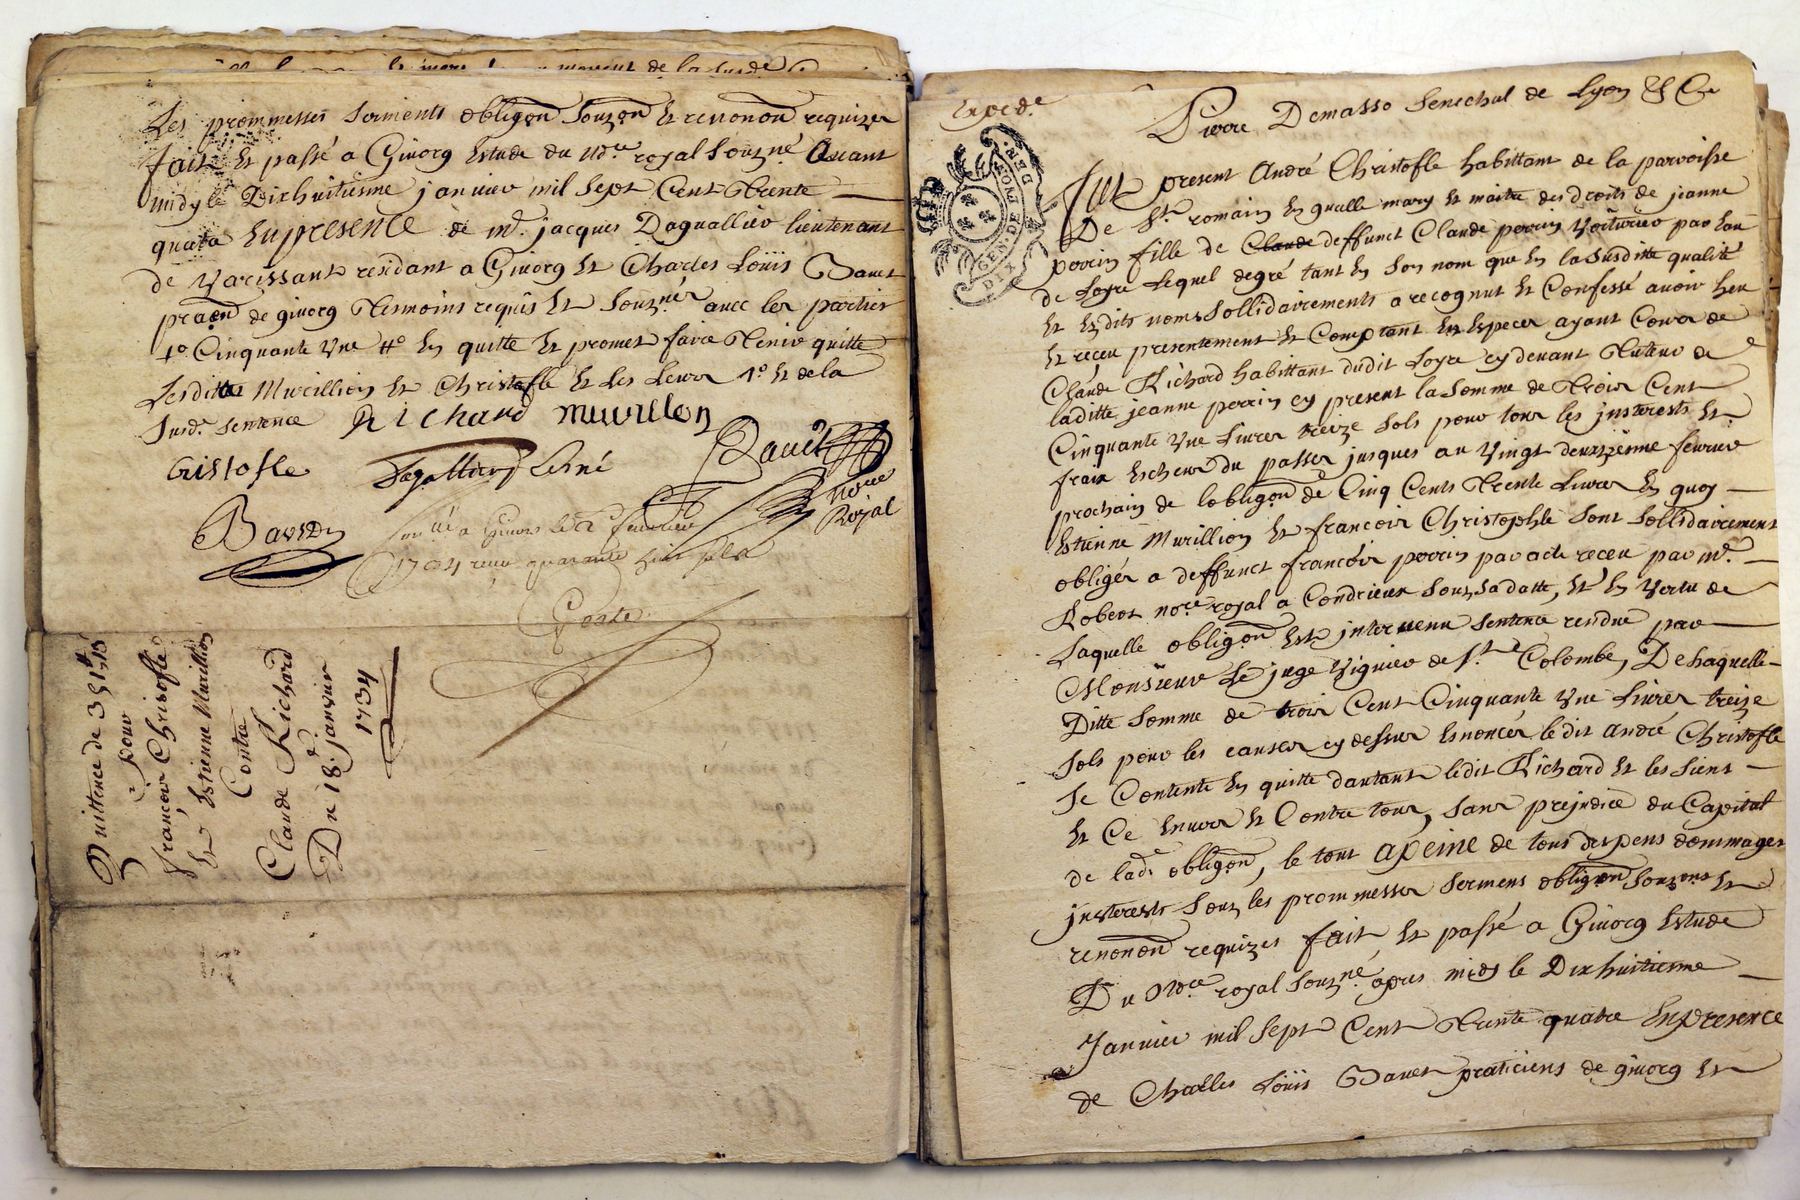 Les prommesses serments obligõn souzõn et renonõn requizes
fait et passé a Givorg estude du No.re royal souz.né avant
midy le dixhuitiesme janvier mil sept cent trente
quatre en presence de m.e jacques Dagallier lieutenant
de Varissant rendant a Givorg et Charles Loüis Bavet
praõn de givorg tesmoins requis et souz.nés avec les parties
1.o Cinquante une tt.o en quitte et promet faire tenir quitte
Lesdittes Murillion et Christofle et les leurs 1.o et de la
susd. sentence Richard murillon
Cristofle Dagallier Bavet
Bavet No.re Royal
a Givors le
1734 receu quarante sols
Quittence de 351 tt 13 s
pour
françois Chrisofle
et Estienne Murillion
Contre
Claude Richard
Du 18.e janvier
1734
Exped.e
Pierre Demasso Senechal de Lyon & Ca
GEN. DE LYON
DIX DEN.
fut present André Christofle habittant de la parroisse
De S.t romain en qualle mary et maitre des droits de jeanne
perrin fille de Claude deffunct Claude perrin Voiturier par eau
de Loyre Lequel degré tant en son nom que en la susditte qualité
et esdits noms sollidairements a recognut et Confessé avoir heu
et receu presentement et Comptant en Especes ayant Cours de
Claude Richard habittant dudit Loyre cy devant Tuteur de
laditte jeanne perrin cy present la somme de trois Cent
Cinquante une Livres treize sols pour tous les jnsterests et
fraix escheus du passer jusques au Vingt deuxziesme fevrier
prochain de lobligõn de Cinq Cents trente Livres en quoy
Estienne Murillion et françois Christophle sont sollidairement
obligés a deffunct françois perrin par acte receu par m.e
Robert no.re royal a Condrieux souz sa datte, et en Vertu de
Laquelle obligõn est jntervenu sentence rendue par
Monsieur Le juge Viguier de S.te Colombe, De laquelle
Ditte somme de trois Cent Cinquante une Livres treize
sols pour les causes cy dessus esnoncés ledit André Christofle
se Contente en quitte dautant ledit Richard et les siens
et Ce envers et Contre tous, sans prejudice du Capital
de lad. obligõn, le tout apeine de tous despens dommages
jnsterests souz les prommesses sermens obligõn souz.ons et
renonõn requizes fait et passé a Givorg Estude
Du No.re royal souz.né apres midy le Dixhuitiesme
Janvier mil sept Cent trente quatre En presence
de Charles Loüis Bavet praticiens de givorg et